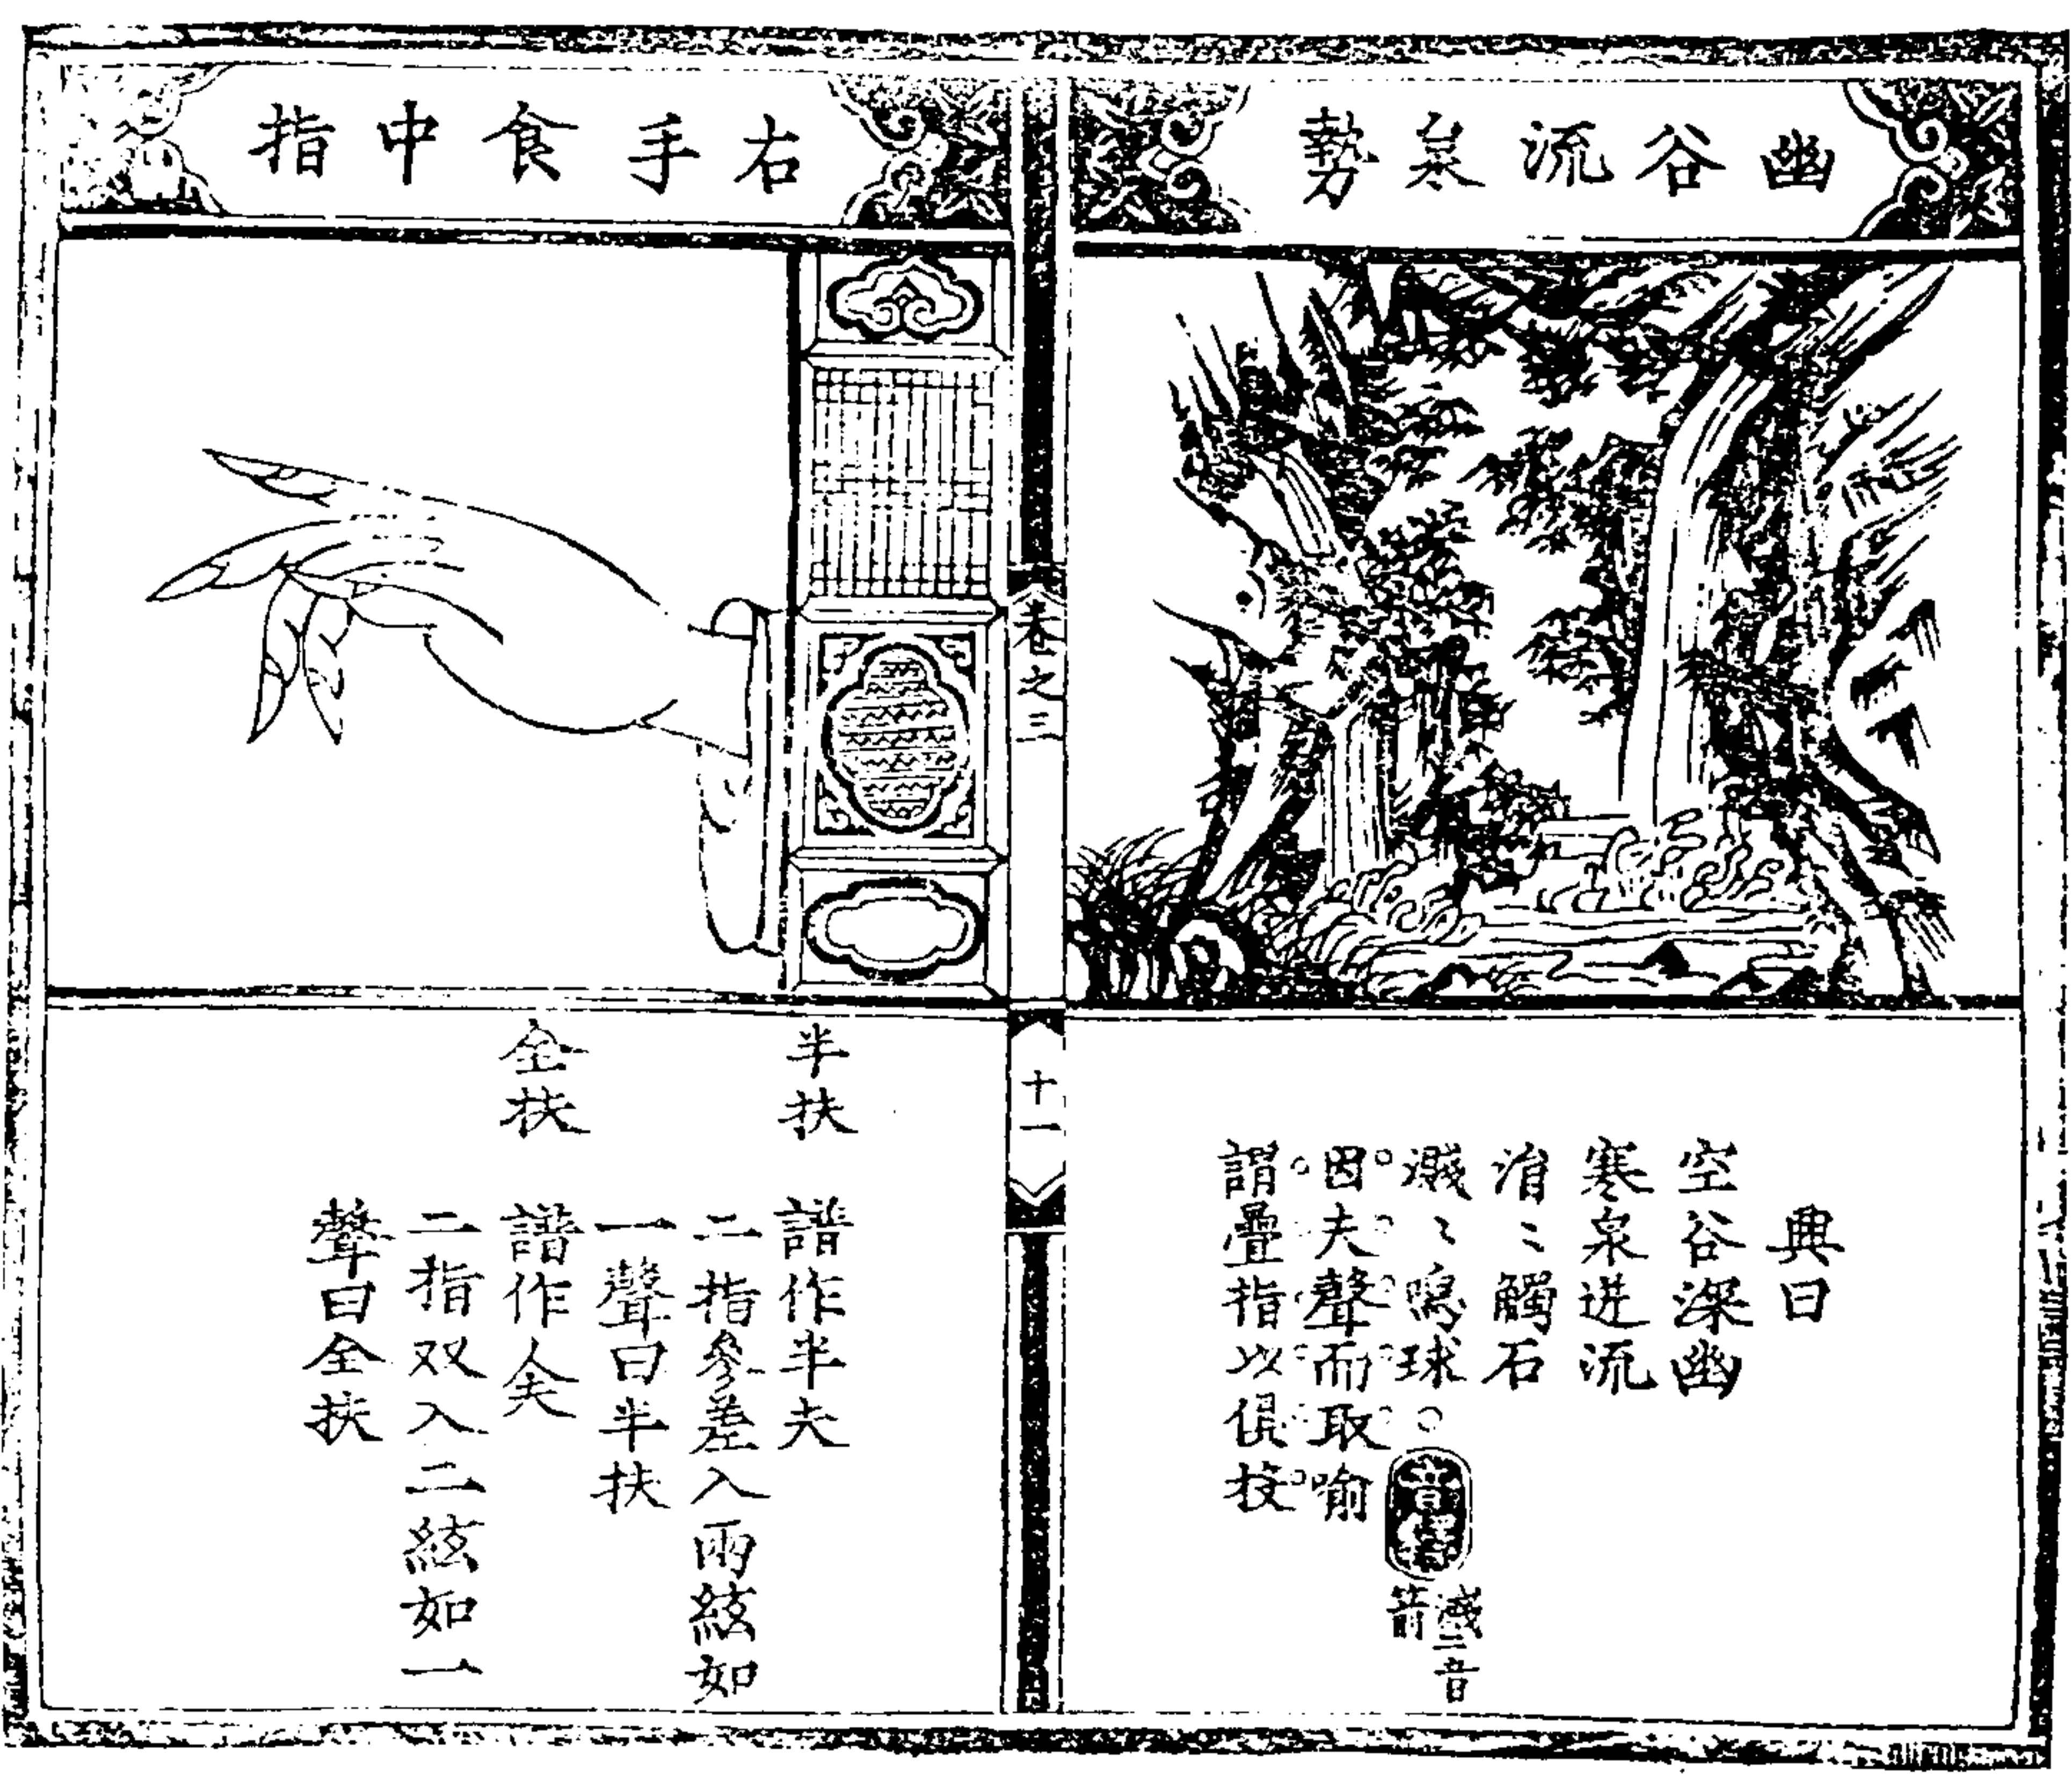 幽谷流泉勢
興曰
空谷深幽
寒泉迸流
涓〻觸石
濺〻鳴球○音釋 濺〻音箭
因夫聲而取喻
謂疊指以俱投
卷之三
十一
右手食中指
半扶 譜作半夫
二指參差入兩絃如
一聲曰半扶
全扶 譜作
二指双入二絃如一
聲曰全扶